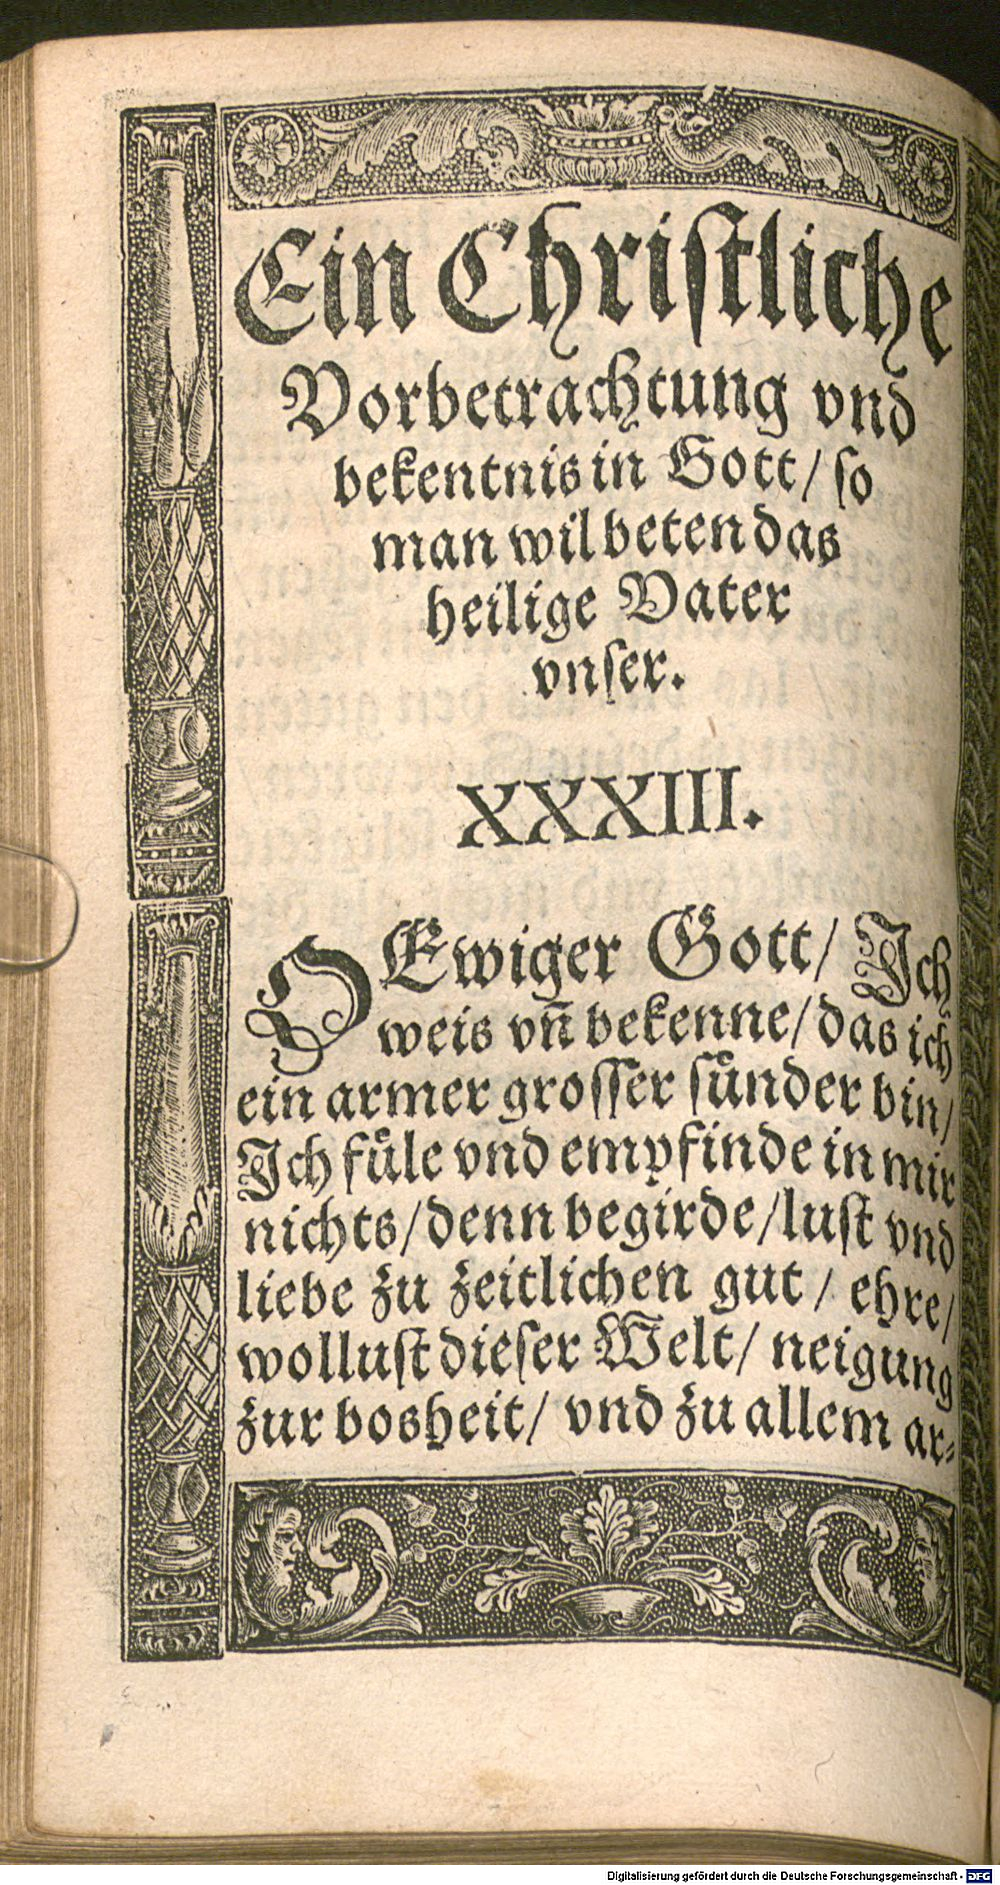 Ein Chriſtliche
Vorbetrachtung vnd
bekentnis in Gott/ ſo
man wil beten das
heilige Vater
vnſer.
XXXIII.
O Ewiger Gott/ Ich
weis vn̄ bekenne/ das ich
ein armer groſſer ſuͤnder bin/
Ich fuͤle vnd empfinde in mir
nichts/ denn begirde/ luſt vnd
liebe zu zeitlichen gut/ ehre/
wolluſt dieſer Welt/ neigung
zur bosheit/ vnd zu allem ar⸗
Digitalisierung gefördert durch die Deutsche Forschungsgemeinschaft - DFG